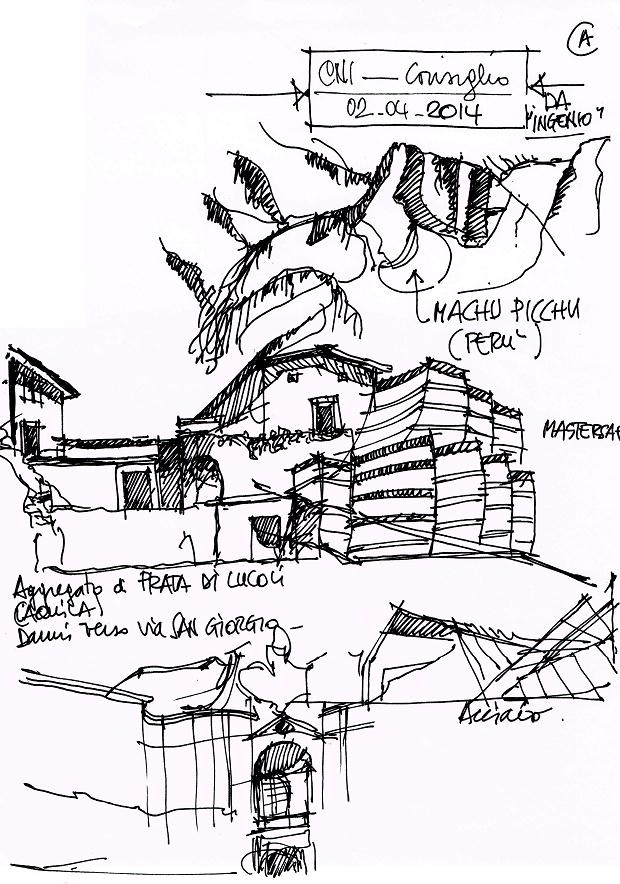 A
CNI — Consiglio
02-04-2014
DA
"INGENIO"
MACHU PICCHU
(PERU')
Aggregato di PRATA DI LUCOLI
(AQUILA)
Danni verso via SAN GIORGIO
Acciaio.